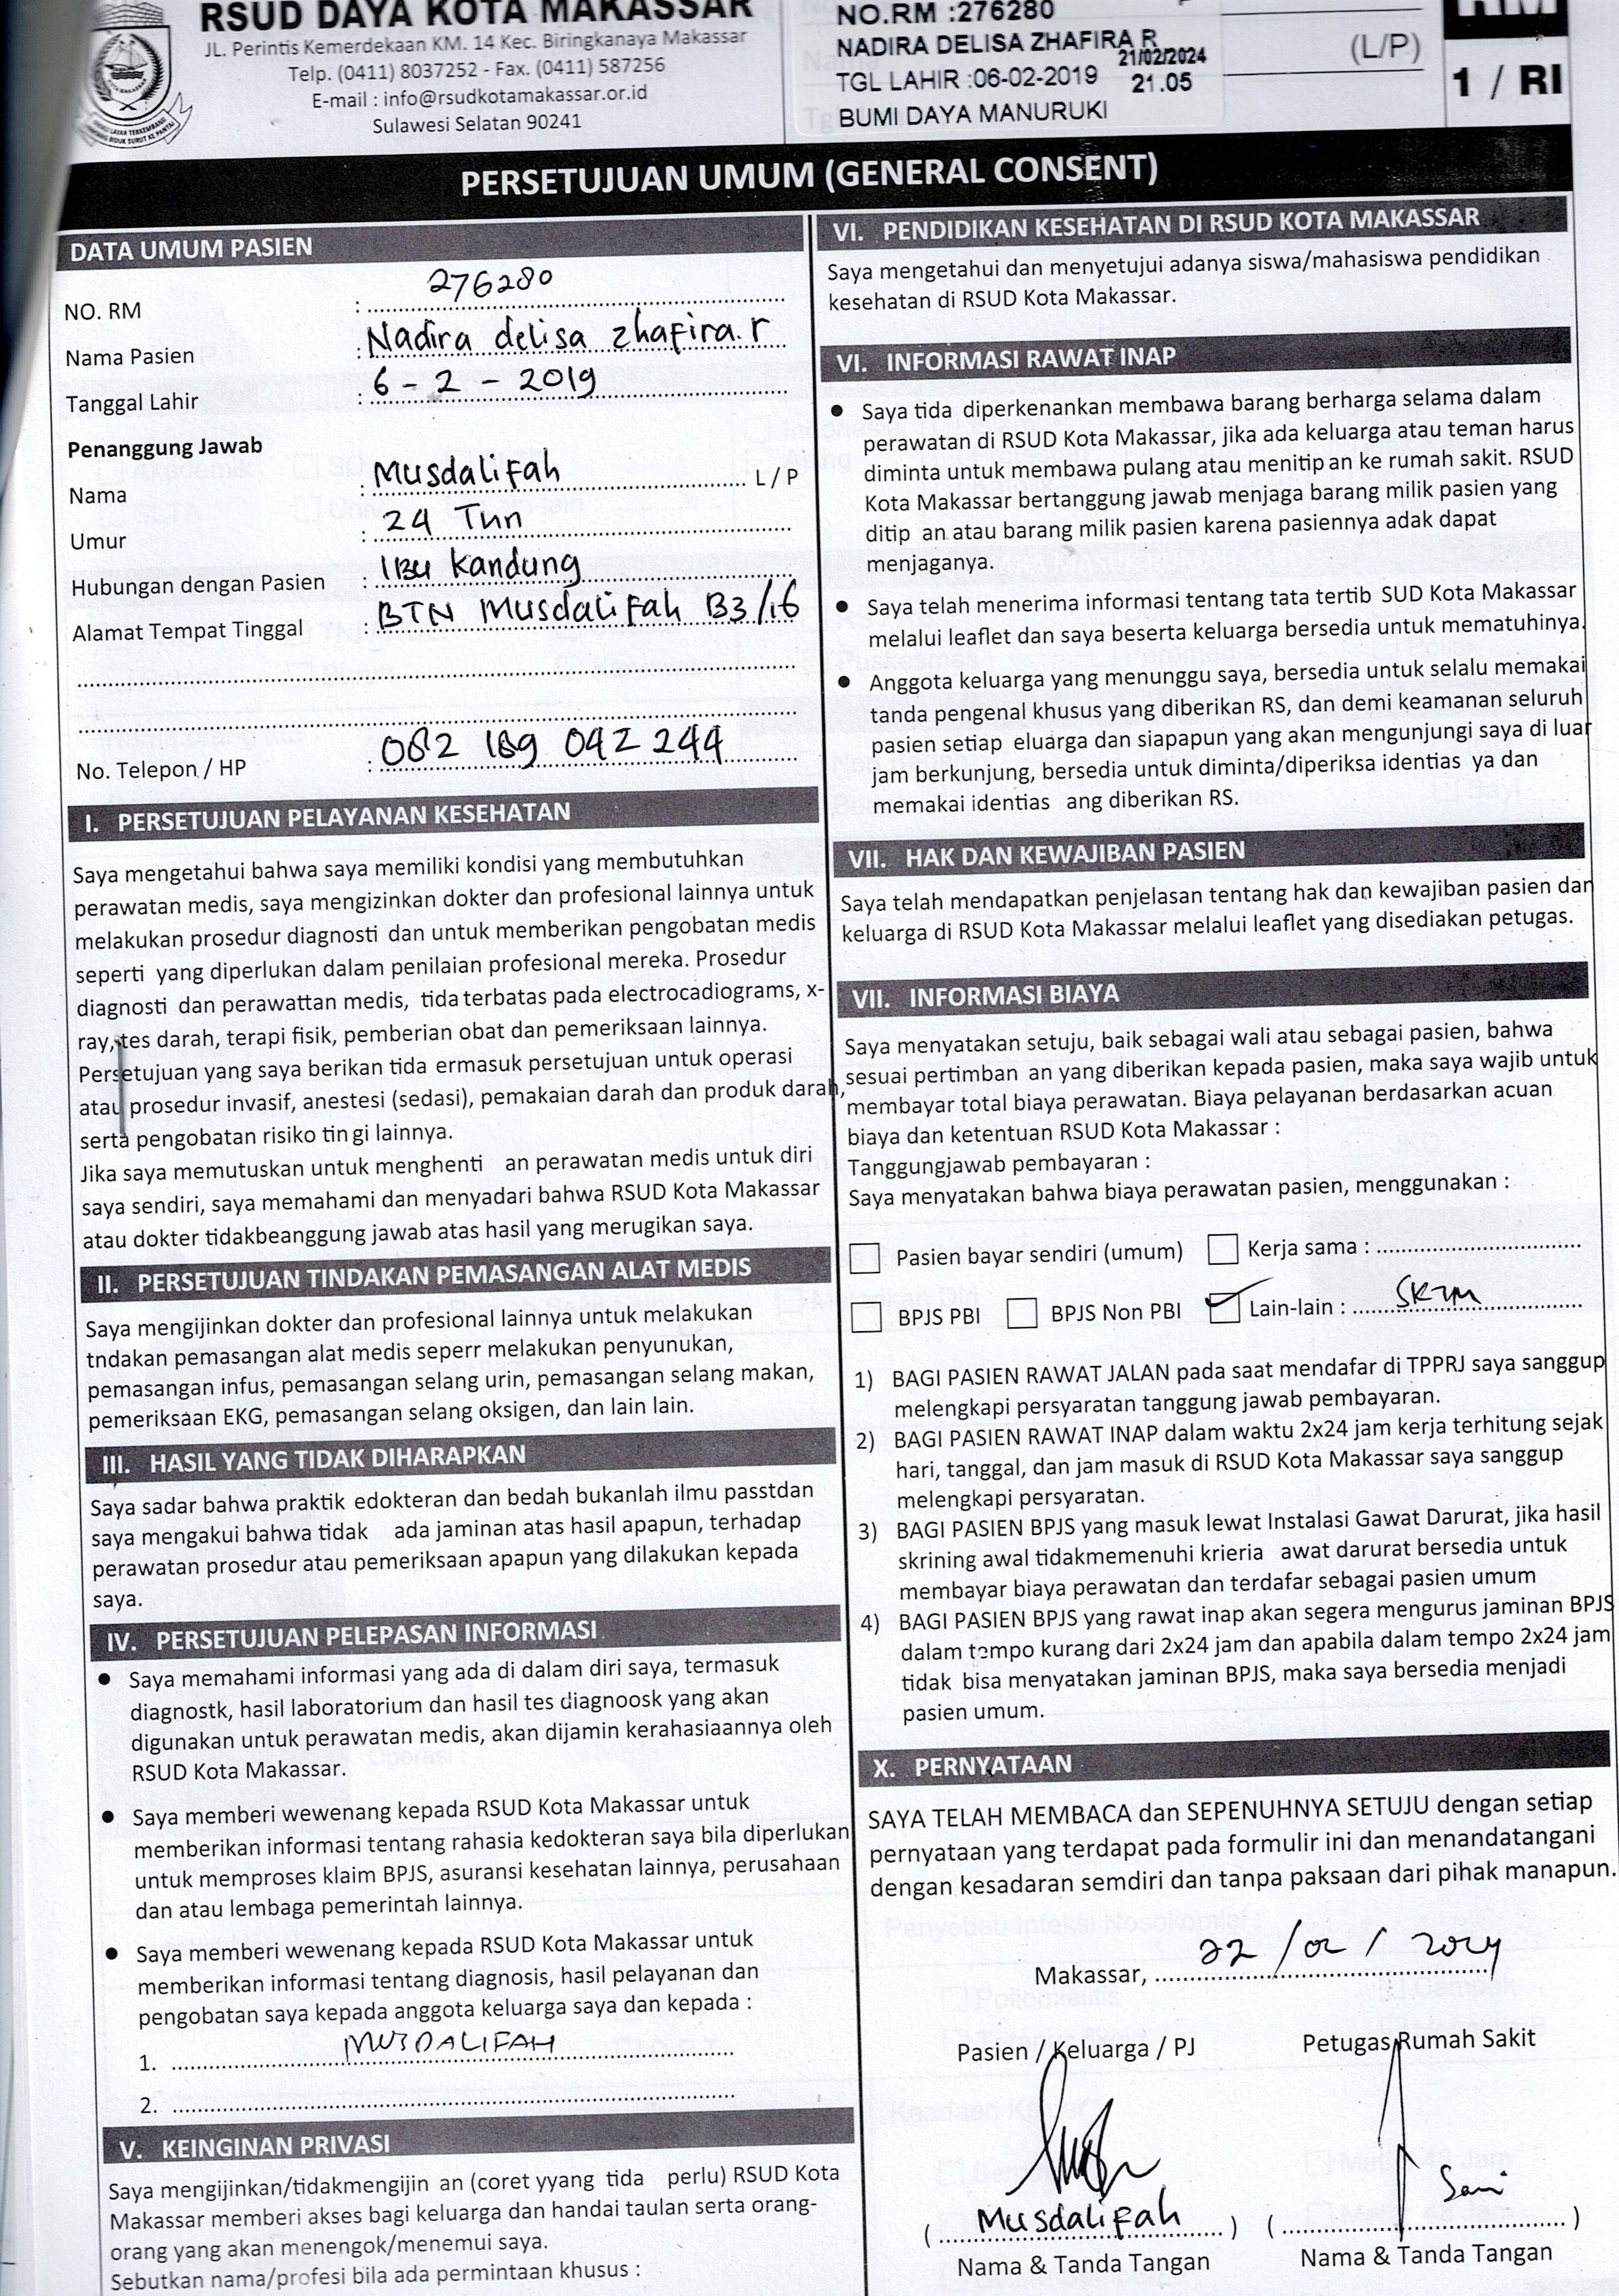 RSUD DAYA KOTA MAKASSAR
JL. Perintis Kemerdekaan KM. 14 Kec. Biringkanaya Makassar
Telp. (0411) 8037252 - Fax. (0411) 587256
E-mail : info@rsudkotamakassar.or.id
Sulawesi Selatan 90241
NO.RM :276280
NADIRA DELISA ZHAFIRA R
21/02/2024
TGL LAHIR :06-02-2019 21.05
BUMI DAYA MANURUKI
(L/P)
RM
1 / RI
PERSETUJUAN UMUM (GENERAL CONSENT)
DATA UMUM PASIEN
NO. RM : 276280
Nama Pasien : Nadira delisa zhafira.r
Tanggal Lahir : 6 - 2 - 2019
Penanggung Jawab
Nama : Musdalifah L / P
Umur : 24 Thn
Hubungan dengan Pasien : IBu Kandung
Alamat Tempat Tinggal : BTN Musdalifah B3/16
No. Telepon / HP : 082 189 042 244
I. PERSETUJUAN PELAYANAN KESEHATAN
Saya mengetahui bahwa saya memiliki kondisi yang membutuhkan
perawatan medis, saya mengizinkan dokter dan profesional lainnya untuk
melakukan prosedur diagnosti dan untuk memberikan pengobatan medis
seperti yang diperlukan dalam penilaian profesional mereka. Prosedur
diagnosti dan perawattan medis, tida terbatas pada electrocadiograms, x-
ray, tes darah, terapi fisik, pemberian obat dan pemeriksaan lainnya.
Persetujuan yang saya berikan tida ermasuk persetujuan untuk operasi
atau prosedur invasif, anestesi (sedasi), pemakaian darah dan produk darah,
serta pengobatan risiko tin gi lainnya.
Jika saya memutuskan untuk menghenti an perawatan medis untuk diri
saya sendiri, saya memahami dan menyadari bahwa RSUD Kota Makassar
atau dokter tidakbeanggung jawab atas hasil yang merugikan saya.
II. PERSETUJUAN TINDAKAN PEMASANGAN ALAT MEDIS
Saya mengijinkan dokter dan profesional lainnya untuk melakukan
tndakan pemasangan alat medis seperr melakukan penyunukan,
pemasangan infus, pemasangan selang urin, pemasangan selang makan,
pemeriksaan EKG, pemasangan selang oksigen, dan lain lain.
III. HASIL YANG TIDAK DIHARAPKAN
Saya sadar bahwa praktik edokteran dan bedah bukanlah ilmu passtdan
saya mengakui bahwa tidak ada jaminan atas hasil apapun, terhadap
perawatan prosedur atau pemeriksaan apapun yang dilakukan kepada
saya.
IV. PERSETUJUAN PELEPASAN INFORMASI
● Saya memahami informasi yang ada di dalam diri saya, termasuk
diagnostk, hasil laboratorium dan hasil tes diagnoosk yang akan
digunakan untuk perawatan medis, akan dijamin kerahasiaannya oleh
RSUD Kota Makassar.
● Saya memberi wewenang kepada RSUD Kota Makassar untuk
memberikan informasi tentang rahasia kedokteran saya bila diperlukan
untuk memproses klaim BPJS, asuransi kesehatan lainnya, perusahaan
dan atau lembaga pemerintah lainnya.
● Saya memberi wewenang kepada RSUD Kota Makassar untuk
memberikan informasi tentang diagnosis, hasil pelayanan dan
pengobatan saya kepada anggota keluarga saya dan kepada :
1. MUSDALIFAH
2.
V. KEINGINAN PRIVASI
Saya mengijinkan/tidakmengijin an (coret yyang tida perlu) RSUD Kota
Makassar memberi akses bagi keluarga dan handai taulan serta orang-
orang yang akan menengok/menemui saya.
Sebutkan nama/profesi bila ada permintaan khusus :
VI. PENDIDIKAN KESEHATAN DI RSUD KOTA MAKASSAR
Saya mengetahui dan menyetujui adanya siswa/mahasiswa pendidikan
kesehatan di RSUD Kota Makassar.
VI. INFORMASI RAWAT INAP
● Saya tida diperkenankan membawa barang berharga selama dalam
perawatan di RSUD Kota Makassar, jika ada keluarga atau teman harus
diminta untuk membawa pulang atau menitip an ke rumah sakit. RSUD
Kota Makassar bertanggung jawab menjaga barang milik pasien yang
ditip an atau barang milik pasien karena pasiennya adak dapat
menjaganya.
● Saya telah menerima informasi tentang tata tertib SUD Kota Makassar
melalui leaflet dan saya beserta keluarga bersedia untuk mematuhinya.
● Anggota keluarga yang menunggu saya, bersedia untuk selalu memakai
tanda pengenal khusus yang diberikan RS, dan demi keamanan seluruh
pasien setiap eluarga dan siapapun yang akan mengunjungi saya di luar
jam berkunjung, bersedia untuk diminta/diperiksa identias ya dan
memakai identias ang diberikan RS.
VII. HAK DAN KEWAJIBAN PASIEN
Saya telah mendapatkan penjelasan tentang hak dan kewajiban pasien dan
keluarga di RSUD Kota Makassar melalui leaflet yang disediakan petugas.
VII. INFORMASI BIAYA
Saya menyatakan setuju, baik sebagai wali atau sebagai pasien, bahwa
sesuai pertimban an yang diberikan kepada pasien, maka saya wajib untuk
membayar total biaya perawatan. Biaya pelayanan berdasarkan acuan
biaya dan ketentuan RSUD Kota Makassar :
Tanggungjawab pembayaran :
Saya menyatakan bahwa biaya perawatan pasien, menggunakan :
Pasien bayar sendiri (umum) Kerja sama :
BPJS PBI BPJS Non PBI Lain-lain : SKTM
1) BAGI PASIEN RAWAT JALAN pada saat mendafar di TPPRJ saya sanggup
melengkapi persyaratan tanggung jawab pembayaran.
2) BAGI PASIEN RAWAT INAP dalam waktu 2x24 jam kerja terhitung sejak
hari, tanggal, dan jam masuk di RSUD Kota Makassar saya sanggup
melengkapi persyaratan.
3) BAGI PASIEN BPJS yang masuk lewat Instalasi Gawat Darurat, jika hasil
skrining awal tidakmemenuhi krieria awat darurat bersedia untuk
membayar biaya perawatan dan terdafar sebagai pasien umum
4) BAGI PASIEN BPJS yang rawat inap akan segera mengurus jaminan BPJS
dalam tempo kurang dari 2x24 jam dan apabila dalam tempo 2x24 jam
tidak bisa menyatakan jaminan BPJS, maka saya bersedia menjadi
pasien umum.
X. PERNYATAAN
SAYA TELAH MEMBACA dan SEPENUHNYA SETUJU dengan setiap
pernyataan yang terdapat pada formulir ini dan menandatangani
dengan kesadaran semdiri dan tanpa paksaan dari pihak manapun.
Makassar, 22/02/2024
Pasien / Keluarga / PJ Petugas Rumah Sakit
Sari
( Musdalifah ) ( )
Nama & Tanda Tangan Nama & Tanda Tangan